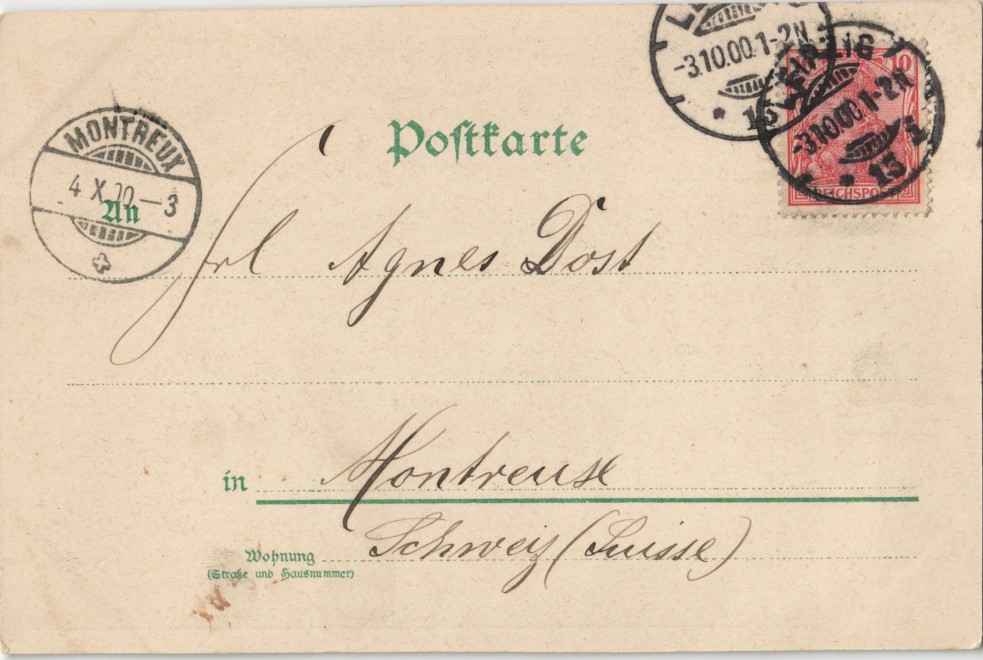 LEIPZIG
-3.10.00.1-2N
* 13
LEIPZIG
-3.10.00.1-2N
* 13
10
REICHSPOST
MONTREUX
4 X.00-3
Postkarte
An
Frl Agnes Dost
in Montreux
Wohnung Schweiz (Suisse)
(Straße und Hausnummer)